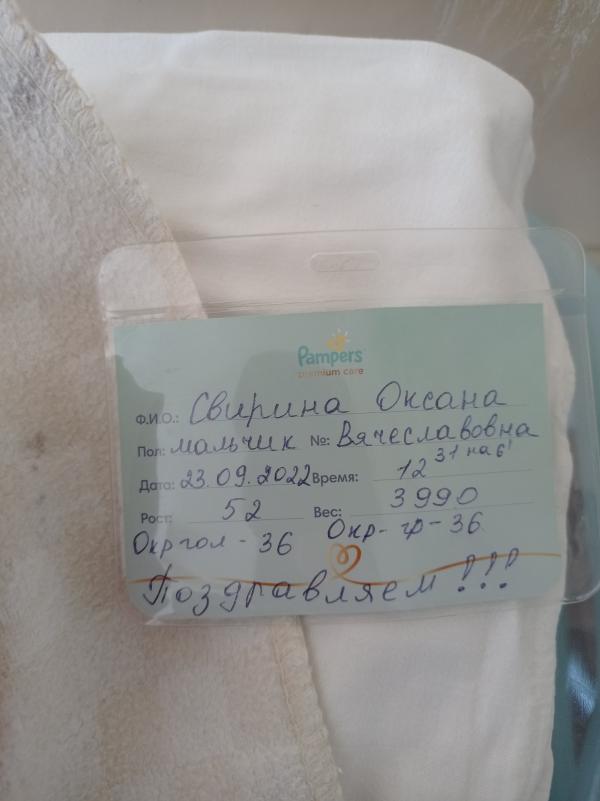 Pampers
premium care
Ф.И.О.: Свирина Оксана
Пол: мальчик №: Вячеславовна
Дата: 23.09.2022 Время: 12 31 на 6
Рост: 52 Вес: 3990
Окр гол - 36 Окр - гр - 36
Поздравляем!!!